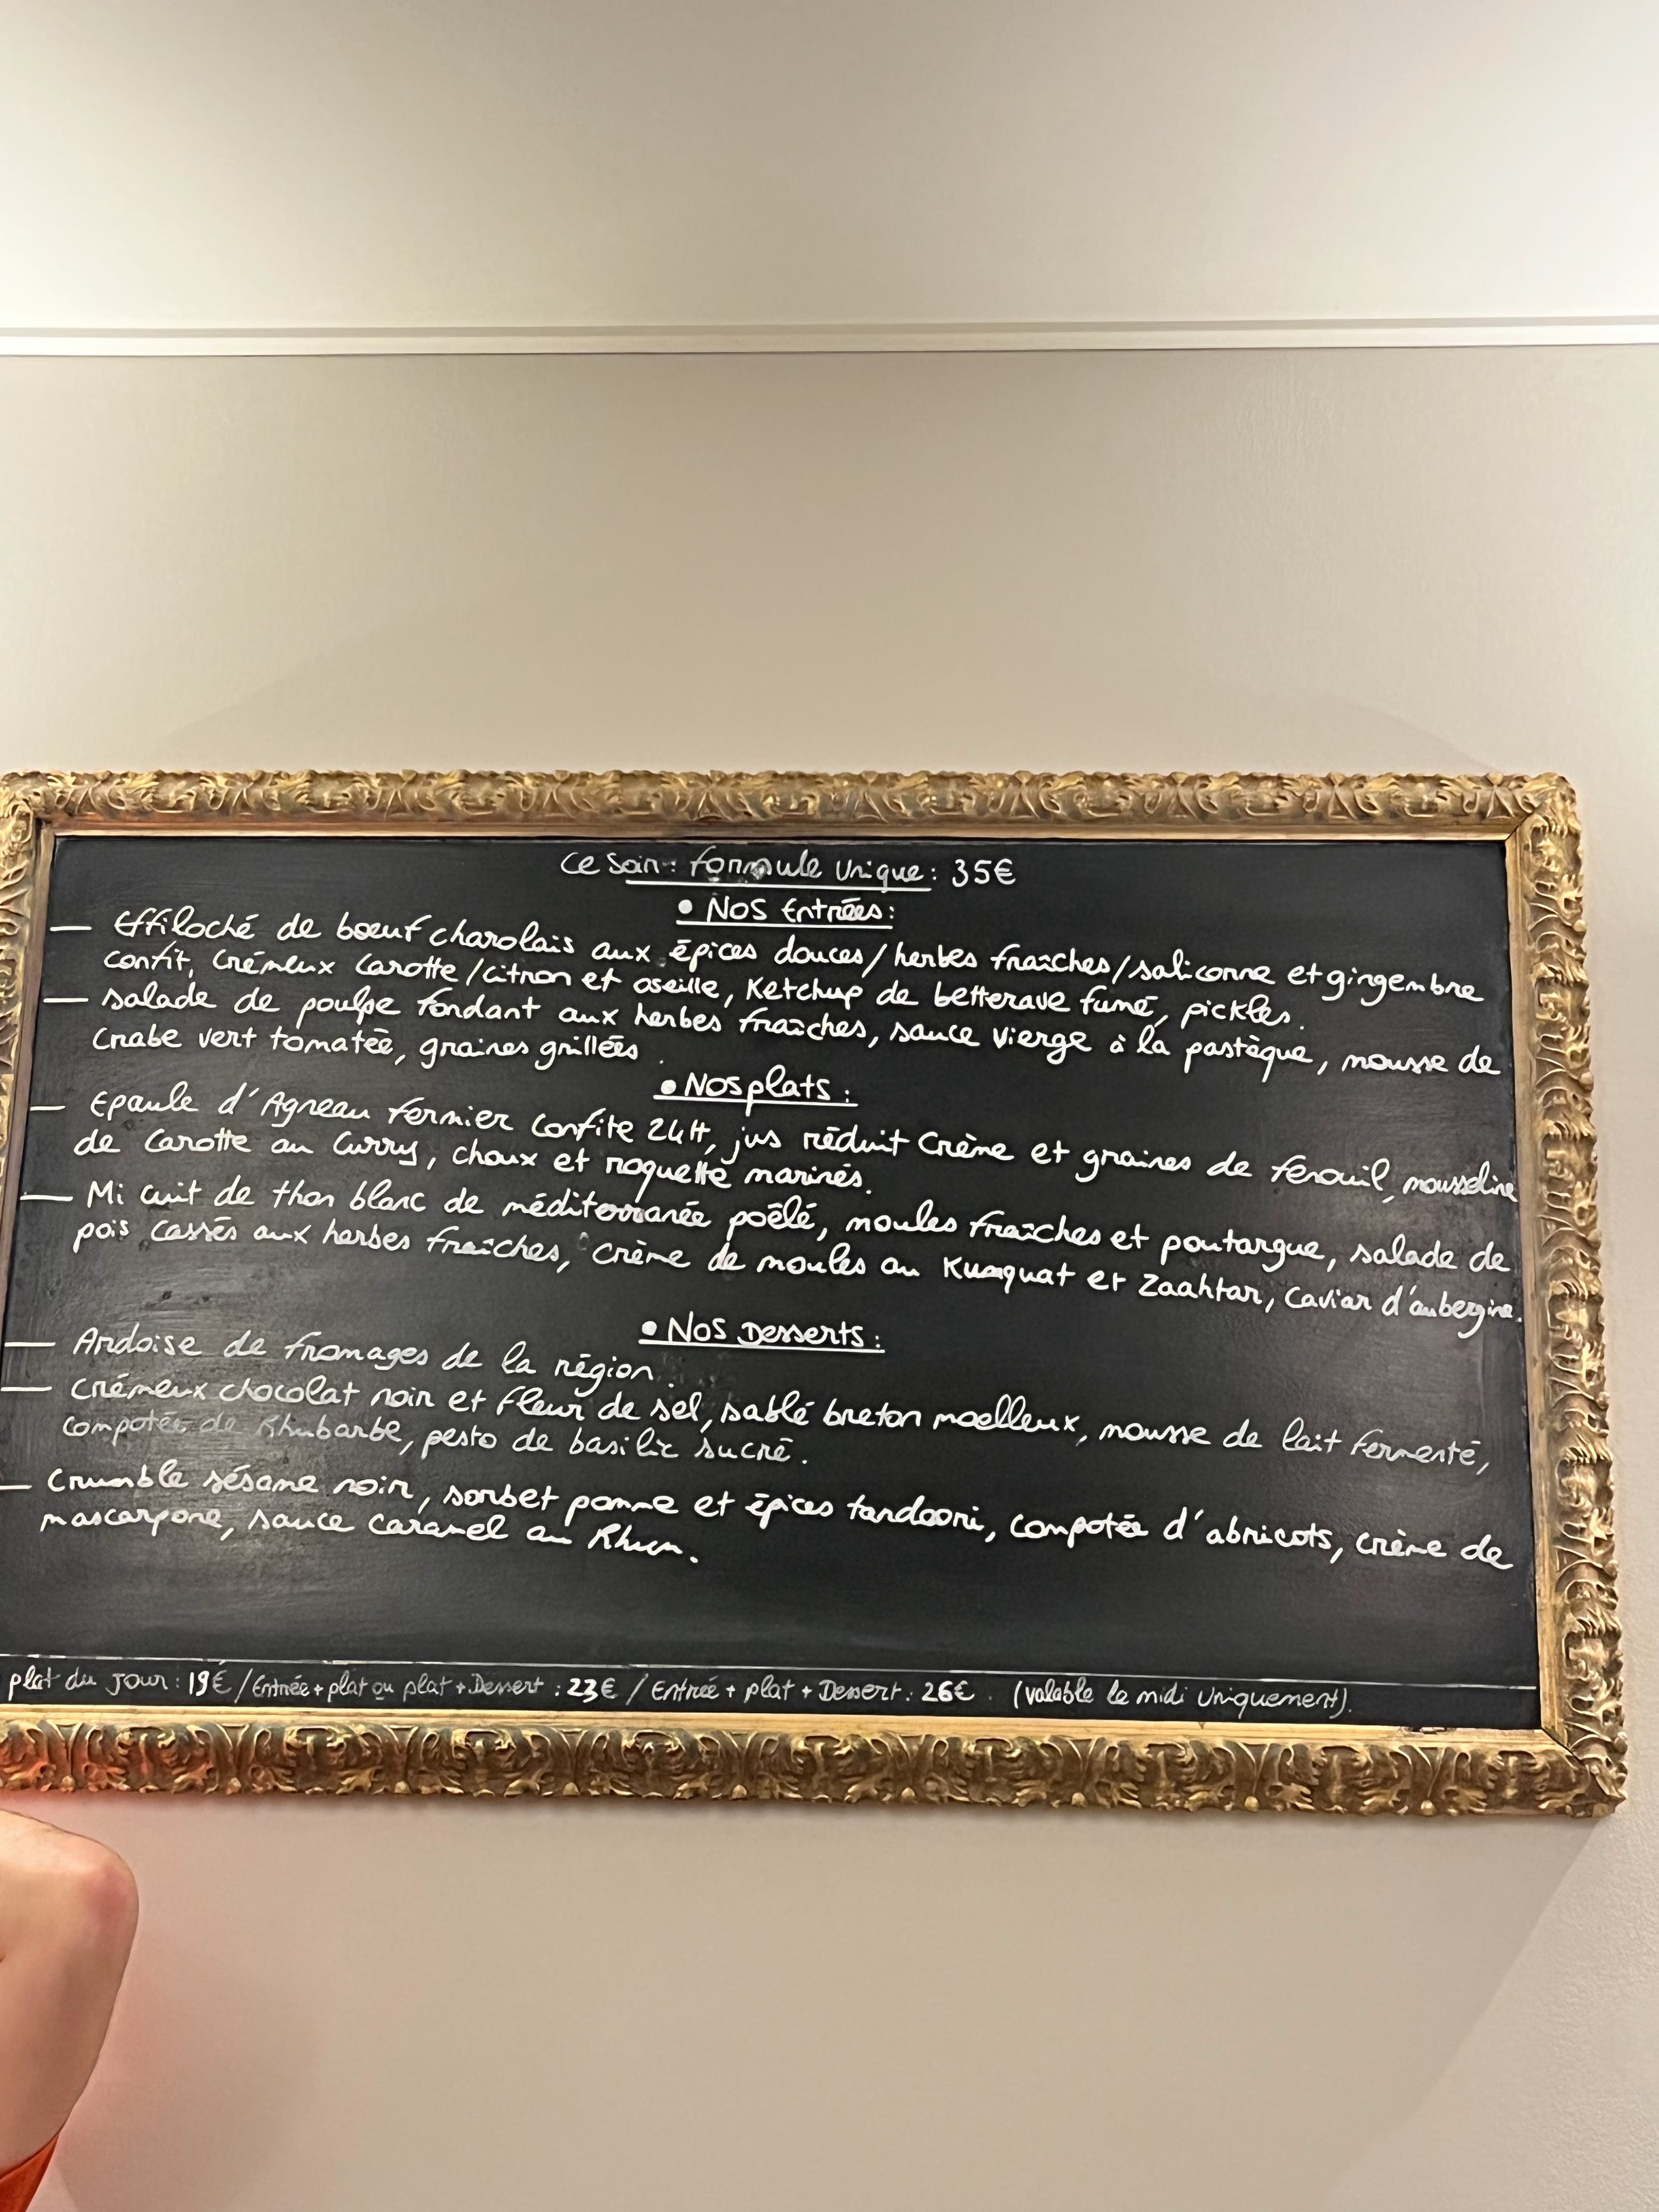 Ce Soir: formule Unique: 35€
• Nos Entrées:
— Effiloché de bœuf charolais aux épices douces/herbes fraîches/salicorne et gingembre
confit, Crémeux Carotte/Citron et oseille, Ketchup de betterave fumé, pickles.
— Salade de poulpe fondant aux herbes fraîches, sauce Vierge à la pastèque, mousse de
Crabe vert tomatée, graines grillées.
• Nos plats:
— Epaule d'Agneau fermier Confite 24H, jus réduit Crème et graines de fenouil, mousseline
de Carotte au Curry, choux et roquette marinés.
— Mi cuit de thon blanc de méditerranée poêlé, moules fraîches et poutargue, salade de
pois cassés aux herbes fraîches, crème de moules au Kumquat et Zaahtar, Caviar d'aubergine.
• Nos Desserts:
— Ardoise de fromages de la région.
— Crémeux chocolat noir et fleur de sel, sablé breton moelleux, mousse de lait fermenté,
compotée de Rhubarbe, pesto de basilic sucré.
— Crumble sésame noir, sorbet pomme et épices tandoori, compotée d'abricots, crème de
mascarpone, sauce caramel au Rhum.
plat du Jour: 19€ / Entrée + plat ou plat + Dessert: 23€ / Entrée + plat + Dessert: 26€. (valable le midi Uniquement).